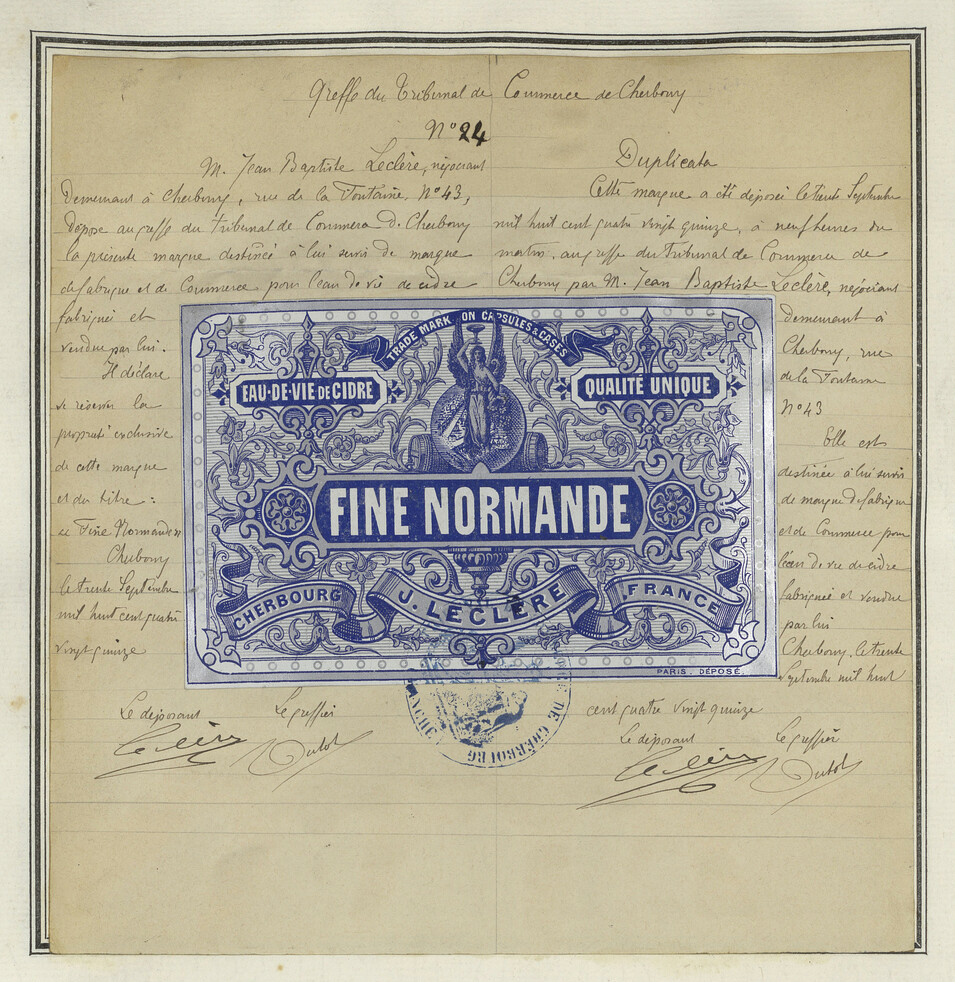 Greffe du Tribunal de Commerce de Cherbourg
N° 24
M. Jean Baptiste Leclère, négociant
Demeurant à Cherbourg, rue de la Fontaine, N° 43,
dépose au greffe du Tribunal de Commerce de Cherbourg
la présente marque destinée à lui servir de marque
de fabrique et de Commerce pour l'eau de vie de cidre
fabriquée et
vendue par lui.
Il déclare
se réserver la
propriété exclusive
de cette marque
et du titre :
« Fine Normande »
Cherbourg
le trente Septembre
mil huit cent quatre
vingt quinze
Le déposant Le greffier
Leclère Dutot
Duplicata
Cette marque a été déposée le trente Septembre
mil huit cent quatre vingt quinze, à neuf heures du
matin, au greffe du Tribunal de Commerce de
Cherbourg par M. Jean Baptiste Leclère, négociant
Demeurant à
Cherbourg, rue
de la Fontaine
N° 43
Elle est
destinée à lui servir
de marque de fabrique
et de Commerce pour
l'eau de vie de cidre
fabriquée et vendue
par lui
Cherbourg, le trente
Septembre mil huit
cent quatre vingt quinze
Le déposant Le greffier
Leclère Dutot
TRADE MARK ON CAPSULES & CASES
EAU-DE-VIE DE CIDRE
QUALITÉ UNIQUE
FINE NORMANDE
CHERBOURG
J. LECLÈRE
FRANCE
PARIS. DÉPOSÉ.
DE CHERBOURG
MANCHE